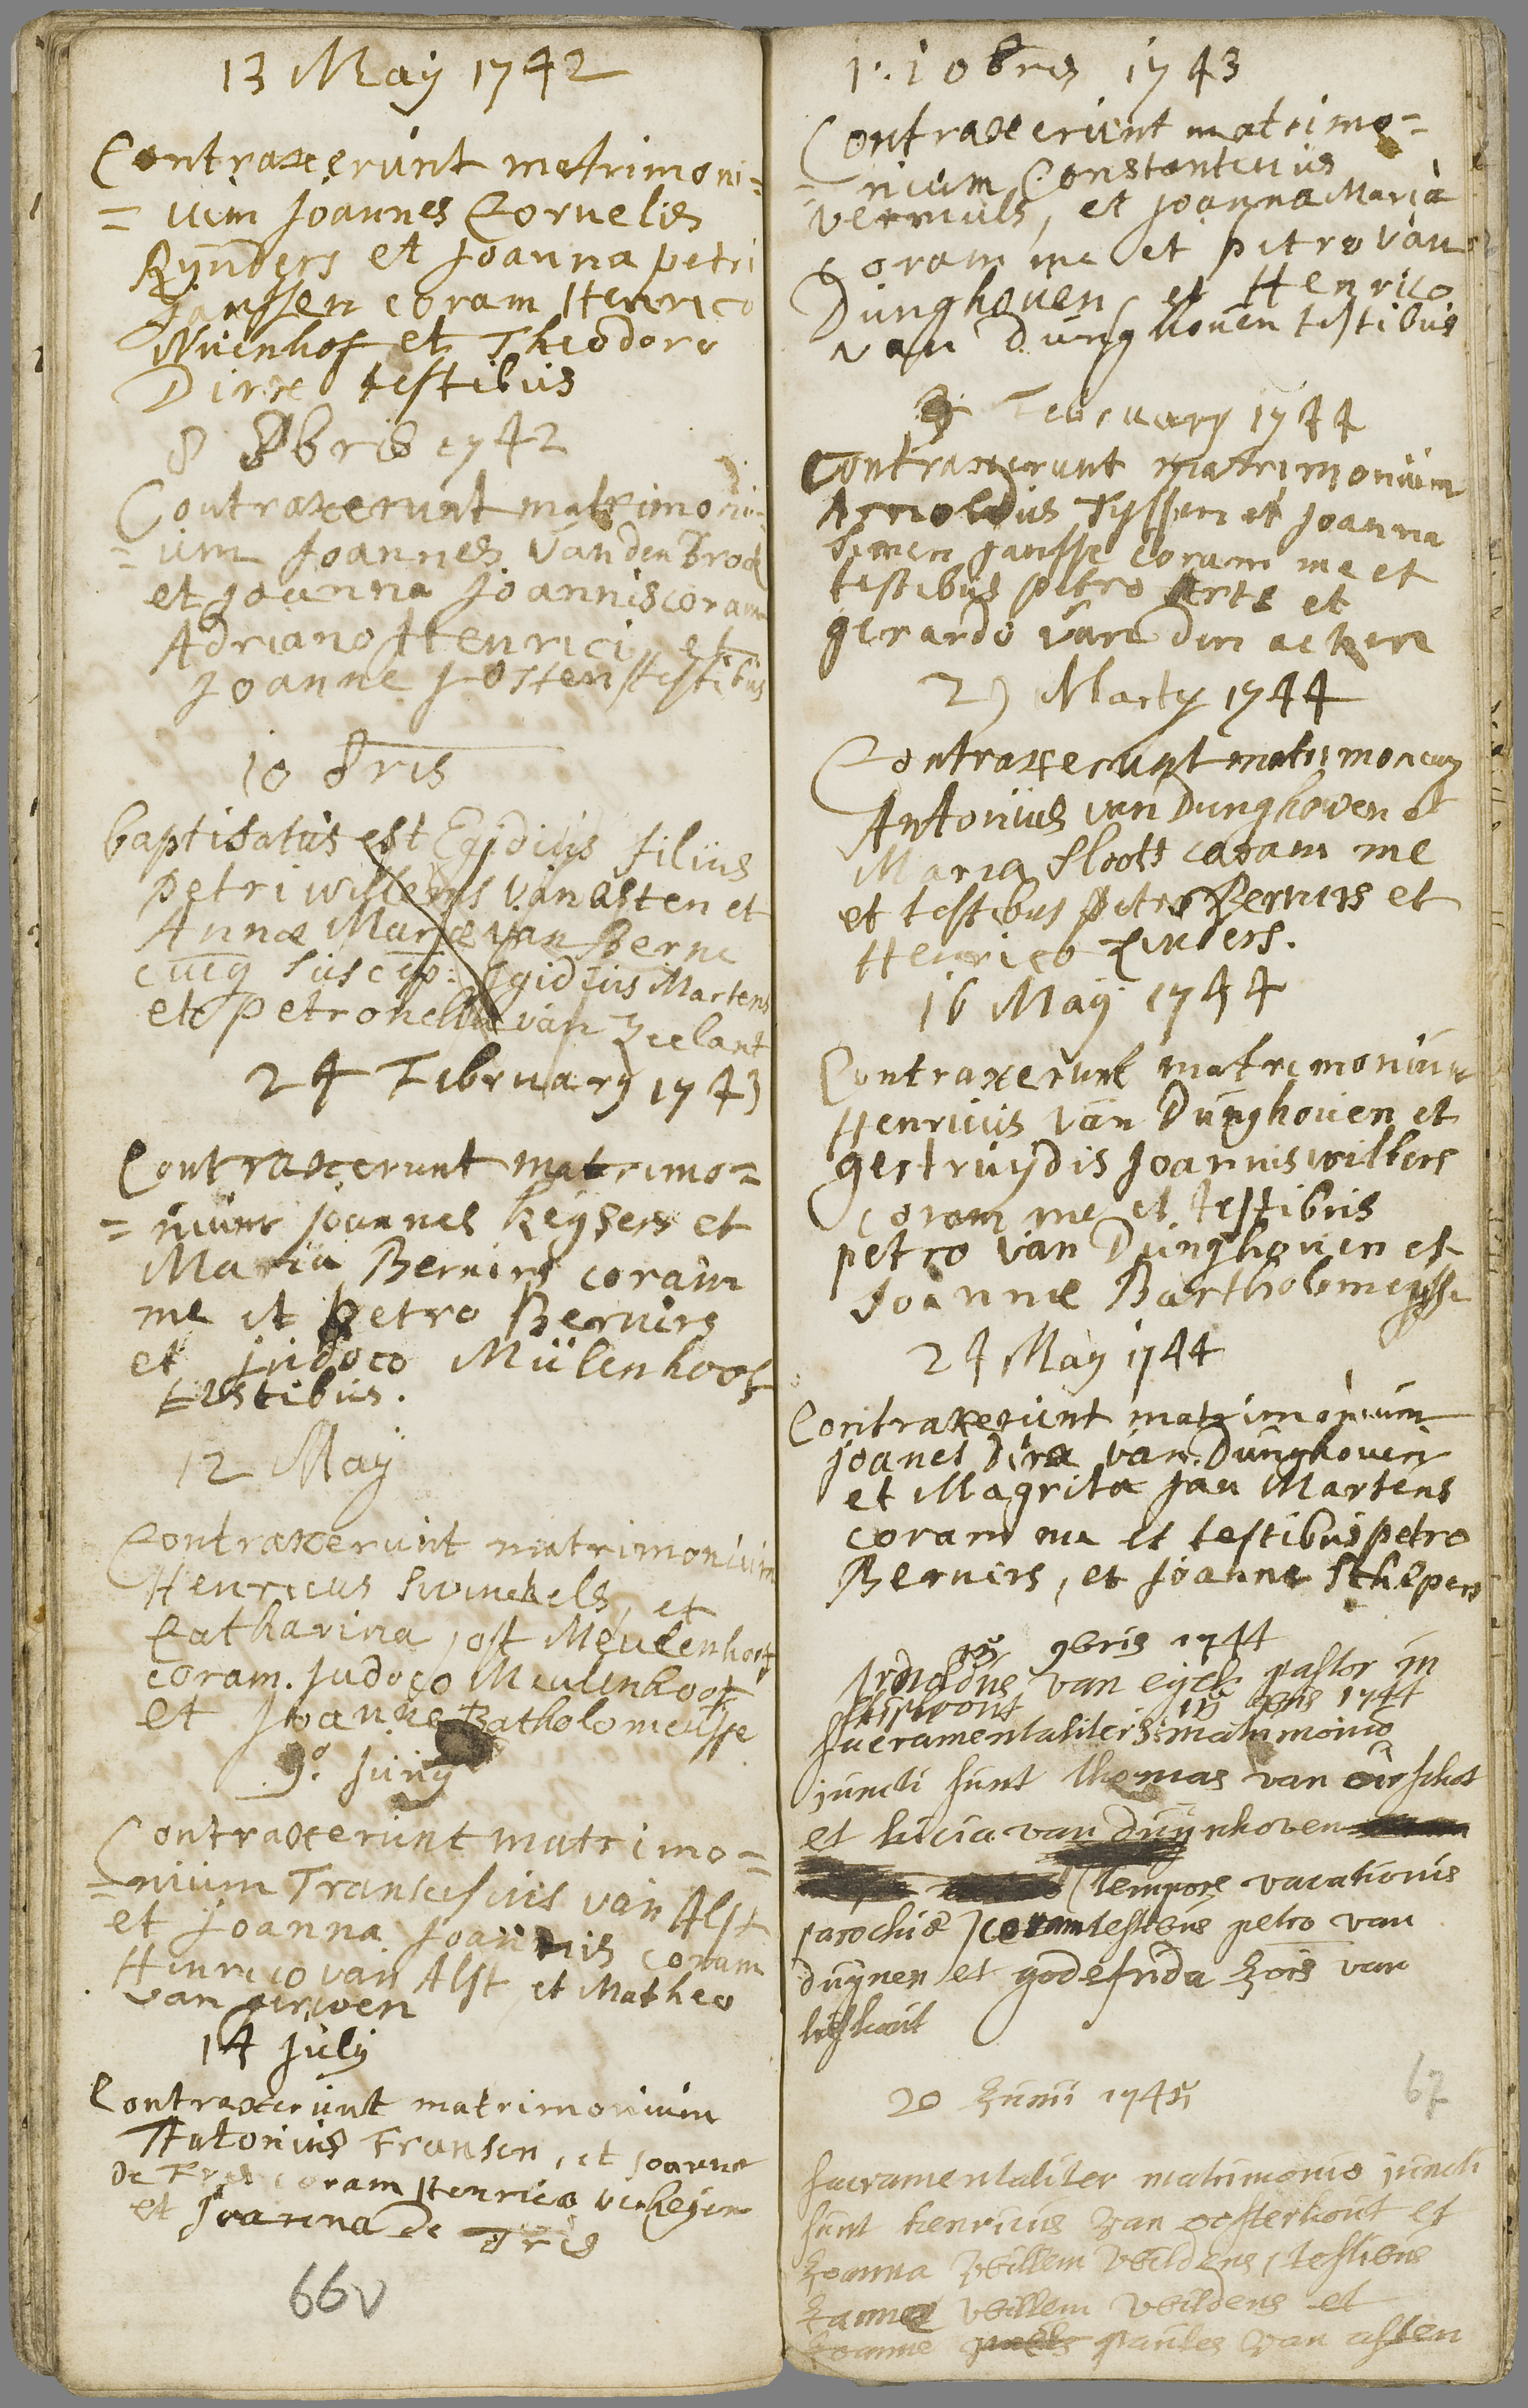 13 May 1742
Contraxerunt matrimoni=
= uum Joannes Cornelis
Rynders et Joanna petri
Janssen coram Henrico
Wuenhof et Theodoro
Dirx testibus
8 8bris 1742
Contraxerunt matrimoni=
= um Joannes van den Broek
et Joanna Joannis coram
Adriano Henrici et
Joanne Josten testibus
10 8bris
baptisatus est Egidius filius
petri willems van asten et
Annæ Mariæ van Berne
cucq suscep: Egidius Martens
et petronella van Zeelant
24 February 1743
Contraxerunt matrimo=
= nium joannes keysers et
Maria Berners coram
me et petro Berners
et judoco Mülenhoof
testibus.
12 May
Contraxerunt matrimonium
Henricus Swinckels, et
Catharina jost Meulenhoof
coram. Judoco Meulenhoof
et Joanne Batholomeusse
9º Juny
Contraxerunt matrimo=
= nium Franciscus van Alst
et Joanna Joannis coram
Henrico van Alst et Matheo
van gerwen
14 July
Contraxerunt matrimonium
Antonius Fransen, et Joanna
De Fris coram Henrico verheyen
et Joanna de Fris
66v
1: 10bris 1743
Contraxerunt matrimo=
= nium Constantinus
vermuls, et Joanna Maria
coram me et petro van
Dunghoven, et Henrico
van Dunghoven testibus
3 February 1744
Contraxerunt matrimonium
Arnoldus Tyssen et Joanna
simen jansse coram me et
testibus petro Arts et
gerardo van den acker
29 Marty 1744
Contraxerunt matrimonium
Antonius van Dunghoven et
Maria Sloots coram me
et testibus petro Berners et
Henrico Rinders.
16 May 1744
Contraxerunt matrimonium
Henricus van Dunghoven et
gertruydis Joannis wilbers
coram me et testibus
petro van Dunghoven et
Joanne Bartholomeysse
24 May 1744
Contraxerunt matrimonium
joanes Dirx van Dunghoven
et Magrita Jan Martens
coram me et testibus petro
Berners, et Joanne Schepers
9bris 1744
Arnoldus van eyck pastor in
lieshout 1744
sacramentaliter matrimonio
juncti sunt thomas van oirschot
et lucia van duynhoven
(tempore vacationis
parochiæ) coram testibus petro van
duynen et godefrida Zois van
lieshout
20 Junii 1745
67
sacramentaliter matrimonio juncti
sunt henricus van oosterhout et
Joanna Willem Wildens, testibus
Janne Willem Wildens et
Joanne paules van asten